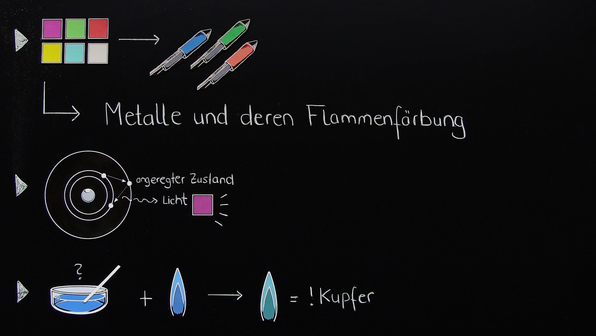 Metalle und deren Flammenfärbung
angeregter Zustand
Licht
?
+ = ! Kupfer